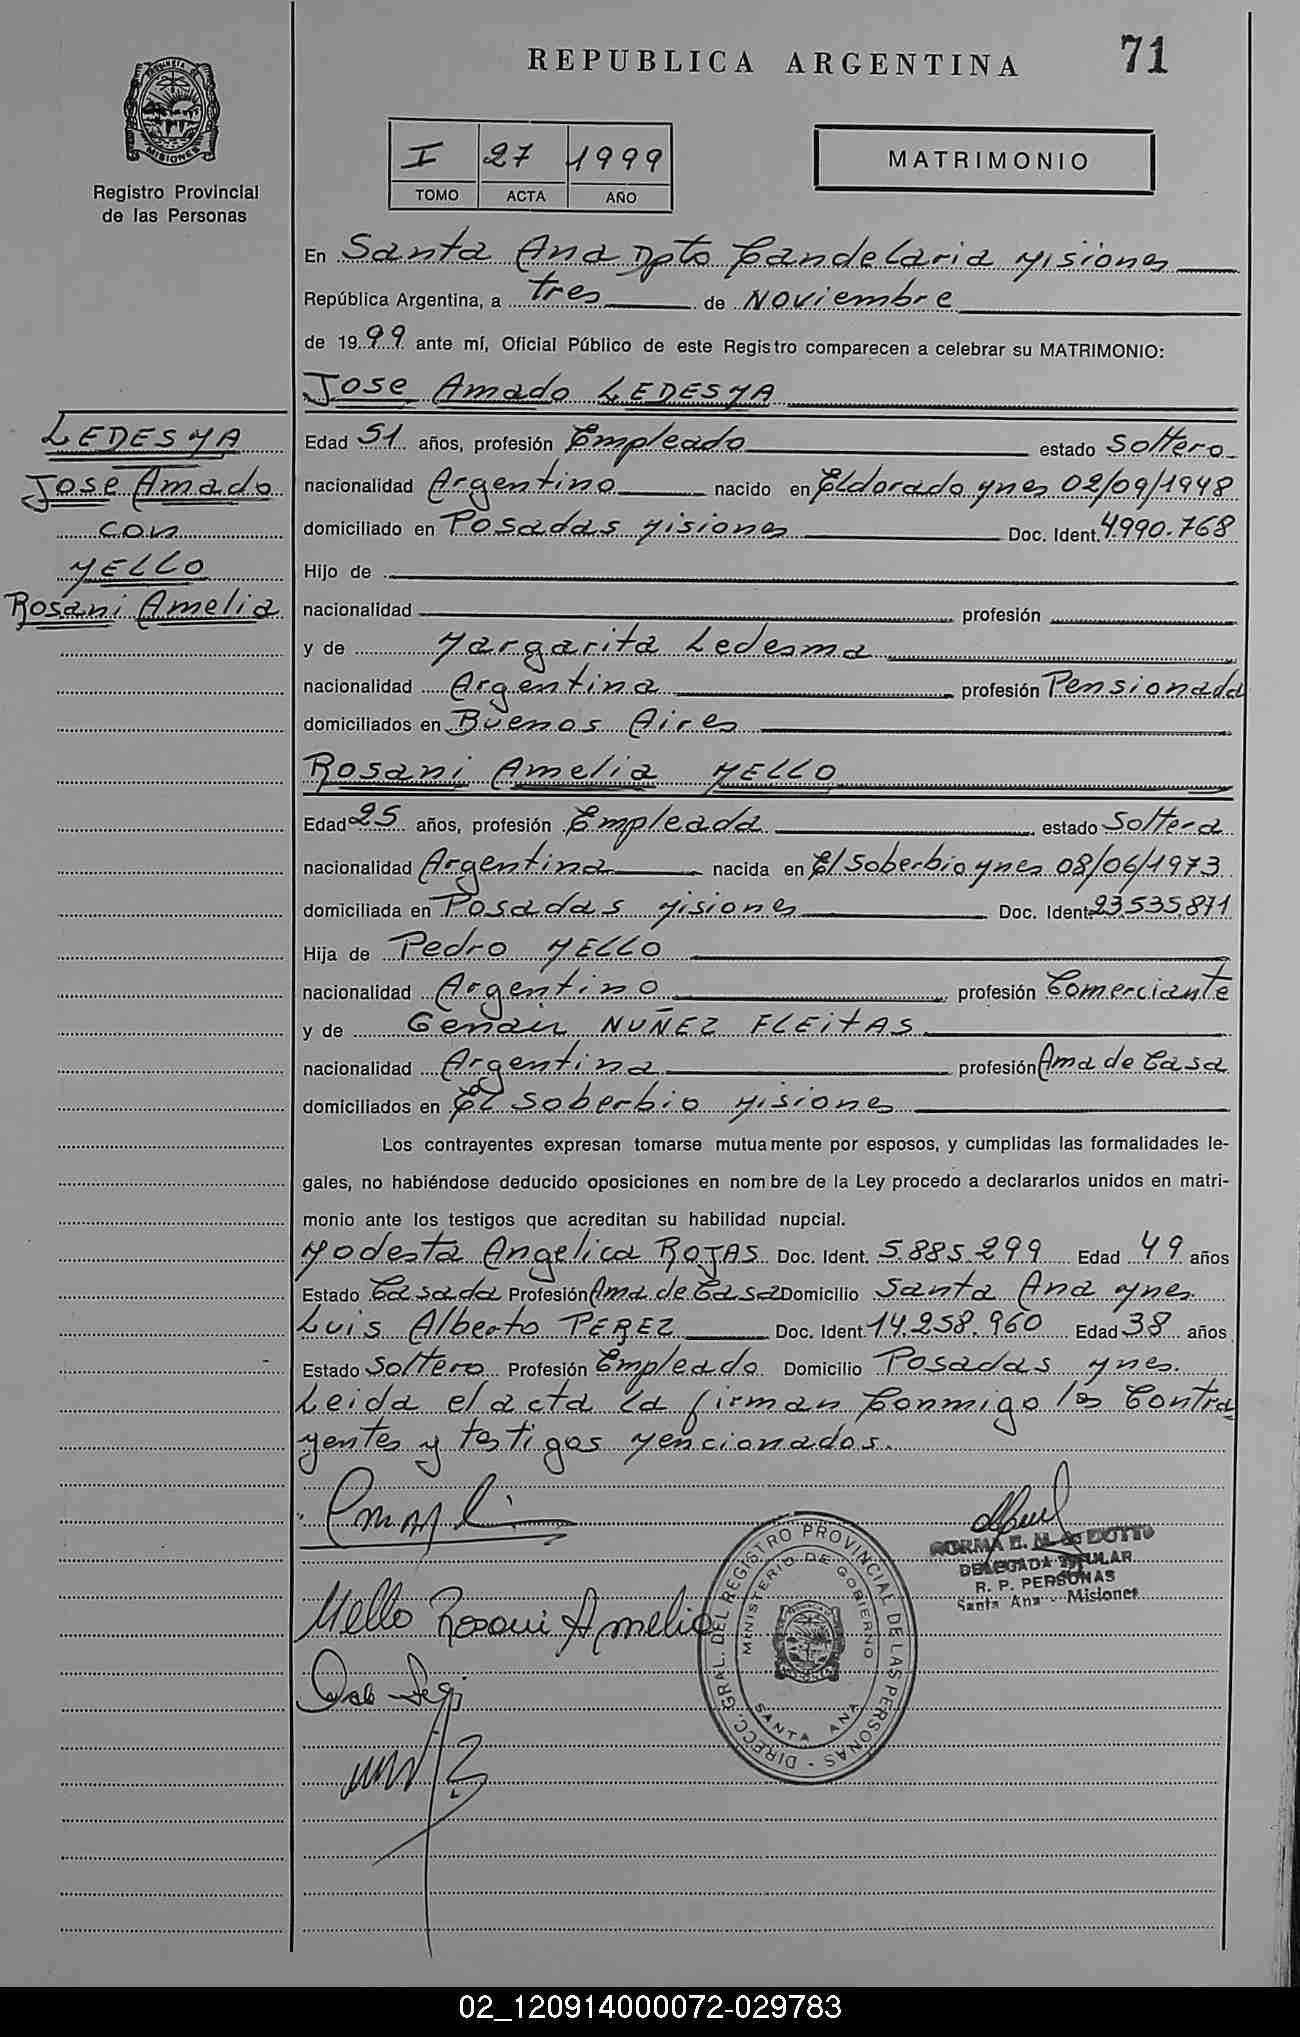 REPUBLICA ARGENTINA
71
MISIONES
Registro Provincial
de las Personas
I 27 1999
TOMO ACTA AÑO
MATRIMONIO
En Santa Ana Dpto Candelaria Misiones
República Argentina, a tres de Noviembre
de 1999 ante mí, Oficial Público de este Registro comparecen a celebrar su MATRIMONIO:
Jose Amado LEDESMA
LEDESMA
Jose Amado
con
MELLO
Rosani Amelia
Edad 51 años, profesión Empleado estado Soltero
nacionalidad Argentino nacido en Eldorado Mnes 02/09/1948
domiciliado en Posadas Misiones Doc. Ident. 4.990.768
Hijo de
nacionalidad profesión
y de Margarita Ledesma
nacionalidad Argentina profesión Pensionada
domiciliados en Buenos Aires
Rosani Amelia MELLO
Edad 25 años, profesión Empleada estado Soltera
nacionalidad Argentina nacida en El Soberbio Mnes 08/06/1973
domiciliada en Posadas Misiones Doc. Ident. 23.535.871
Hija de Pedro MELLO
nacionalidad Argentino profesión Comerciante
y de Genair NUÑEZ FLEITAS
nacionalidad Argentina profesión Ama de Casa
domiciliados en El Soberbio Misiones
Los contrayentes expresan tomarse mutuamente por esposos, y cumplidas las formalidades le-
gales, no habiéndose deducido oposiciones en nombre de la Ley procedo a declararlos unidos en matri-
monio ante los testigos que acreditan su habilidad nupcial.
Modesta Angelica ROJAS Doc. Ident. 5.885.299 Edad 49 años
Estado Casada Profesión Ama de Casa Domicilio Santa Ana Mnes.
Luis Alberto PEREZ Doc. Ident. 14.258.960 Edad 38 años
Estado Soltero Profesión Empleado Domicilio Posadas Mnes.
Leida el acta la firman Conmigo los Contra
yentes y testigos Mencionados.
NORMA E. M. de DOTTO
DELEGADA TITULAR
R. P. PERSONAS
Santa Ana - Misiones
Mello Rosani Amelia
DIRECC. GRAL. DEL REGISTRO PROVINCIAL DE LAS PERSONAS
MINISTERIO DE GOBIERNO
SANTA ANA
02_120914000072-029783